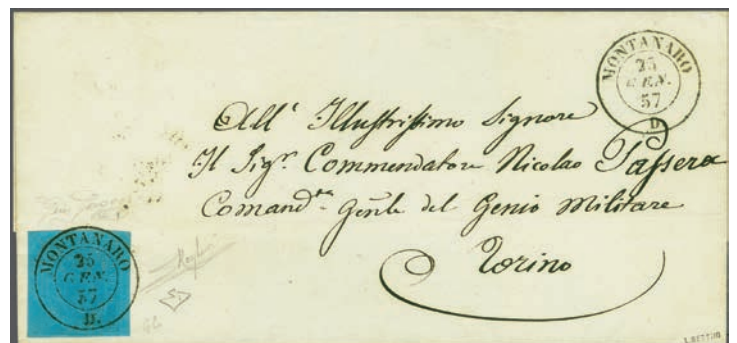 MONTANARO
25
GEN.
57
D.
All' Illustrissimo Signore
Il Sigr. Commendatore Nicolao
Comandte Genle del Genio Militare
Torino
MONTANARO
25
GEN.
57
D.